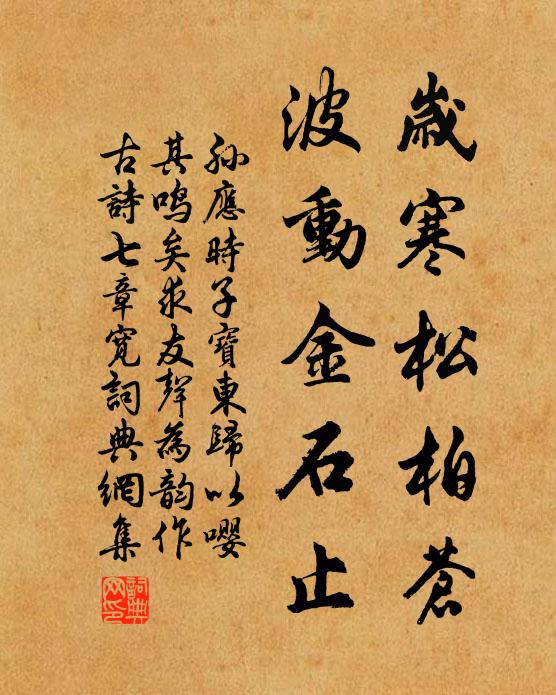 歲寒松柏蒼
波動金石止
孫應時子寶東歸以嚶
其鳴矣求友聲為韵作
古詩七章寬詞典網集
詞典網印